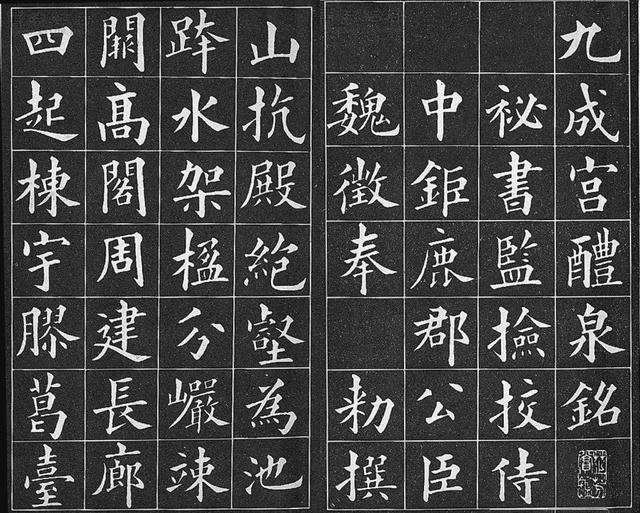 九成宮醴泉銘
祕書監撿挍侍
中鉅鹿郡公臣
魏徵奉 勅撰
山抗殿絶壑為池
跨水架楹分巗竦
闕髙閣周建長廊
四起棟宇膠葛臺